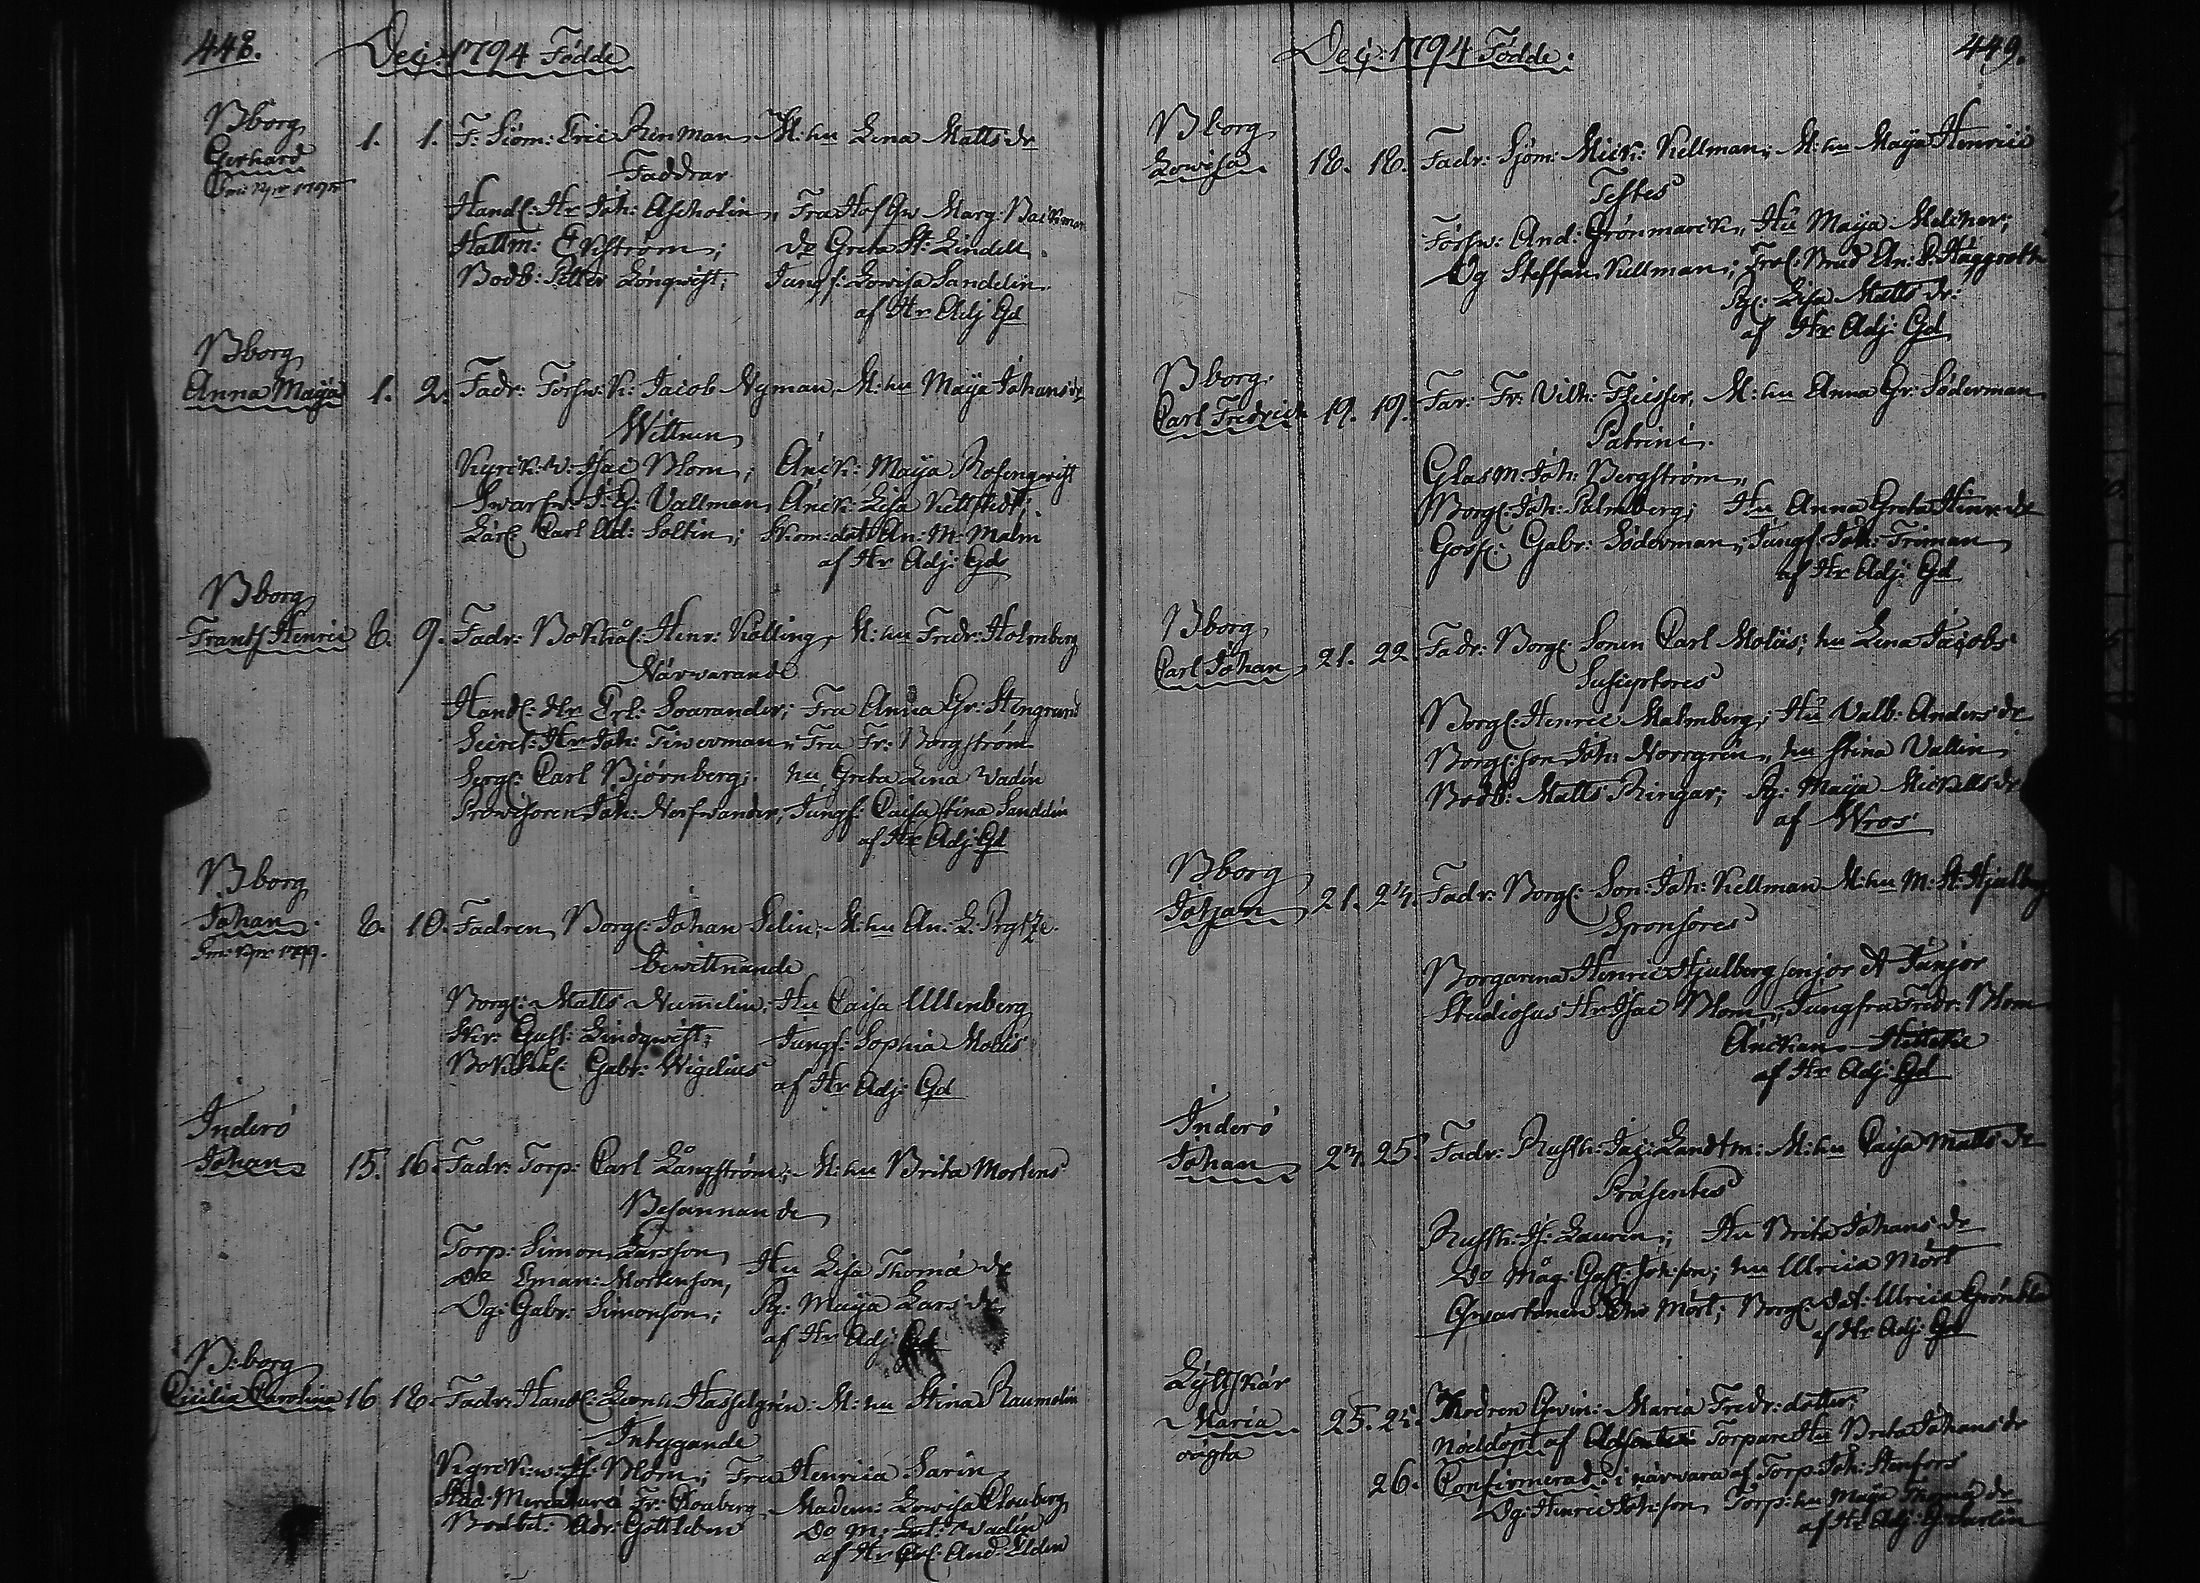 448. Decj: 1794 Födde
Bborg
Gerhard 1. 1. F: Siöm: Eric Renman, M: hu Lena Matts dr
Faddrar
Handl: Hr Joh: Ascholin, Fru Marg: Backman
Hattm: Ekström; do Greta St: Lindell.
Bodb: Petter Lönqwist; Jungf: Lowisa Sandelin
af Hr Adj Gd
Bborg
Anna Maija 1. 2. Fadr: Försw: K: Jacob Nyman, M: hu Maija Johans dr
Wittnen
Kyrck: w: Isac Blom; Änck: Maija Rosenqwist
Swarfw: J. G: Vallman, Änck: Lisa Kellstedt;
Lärl: Carl Ad: Soltin; Skom: dot An: M: Malm
af Hr Adj: Gd
Bborg
Frants Henric 8. 9. Fadr: Bokhål: Henr: Kölling, M: hu Fredr: Holmberg
Närwarande
Handl: Hr Erl: Sourander; Fru Anna Gr: Stengrund
Secret: Hr Joh: Timerman, Fru Fr: Borgström
Sergt: Carl Björnberg; hu Greta Lena Vadén
Provisoren Joh: Nerfwander, Jungf: Caisa Stina Sanddén
af Hr Adj: Gd
Bborg
Johan 8. 10. Fadren, Borgl: Johan Selin; M: hu An: L:
bewittnande
Borgl: Matts Numelin; Hu Caisa Ullenberg
Skr: Gust: Lindqwist; Jungf: Sophia Molis
Bokhål: Gabr: Wigelius
af Hr Adj: Gd
Inderö
Johan 15. 16. Fadr: Torp: Carl Långström; M: hu Brita Mortens
Besannande
Torp: Simon Larsson, Hu Lisa Thomæ dr
Do Eman: Mortenson,
Dg: Gabr: Simonson; Pg: Maija Lars dr
af Hr Adj Gd
B:borg
Cicilia Carolina 16 18. Fadr: Handl: Leonh: Hasselgrén: M: hu Stina Raumolin
Intygande
Kyrck: w: Is: Blom; Fru Henrica Sarin
Stud: Fr: Clouberg, Madem: Lowisa Clouberg
Bodbet: Adr: Gottleben Do M: Vadén
af Hr And: Eldén
Decj: 1794 Födde. 449.
Bborg
Lowisa 18. 18. Fadr: Sjöm: Mick: Kellman; M: hu Maija Henrici
Testes
Försw: And: Grönmarck, Hu Maija Melcher;
Dg Steffan Kellman; An: L: Häggroth
Pg: Lisa Matts dr:
af Hr Adj: Gd
Bborg.
Carl Fredrick 19. 19. Far: Fr: Vilh: M: hu Anna Gr: Söderman
Patrini.
Glasm: Joh: Bergström,
Borgl: Joh: Palmberg; Hu Anna Greta Hinr: dr
Goss: Gabr: Söderman; Jungf: Joh: Friman
af Hr Adj: Gd
Bborg
Carl Johan 21. 22. Fadr: Borgl: Sonen Carl Moliis; hu Lena Jacobs
Susceptores
Borgl: Henric Malmberg; Hu Valb: Anders dr
Borgl: son Joh: Norrgrén, hu Stina Vallin
Bodb: Matts Ringar; Pg: Maija Mickells dr
af Wros
Bborg
Johan 21. 24. Fadr: Borgl: Son: Joh: Kellman M: hu M: St: Hjulberg
Sponsores
Borgarena Henric Hjulberg senjor et Junjor
Studiosus Hr Isac Blom; Jungfru Fredr: Blom
Änckan
af Hr Adj: Gd
Inderö
Johan 24. 25. Fadr: Rusth: Jac: Landtm: M: hu Caisa Matts dr
Præsentes
Rusth: Is: Laurén; Hu Brita Johans dr
Do Måg: Gust: Joh:son; hu Ulrica Mört
Mört; Borgl: dot: Ulrica
af Hr Adj: Gd
Lyttskär
Maria 25. 25. Modren Qvin: Maria Fredr: dotter:
oägta nöddöpt af Torpare Hu Brita Johans dr
26. Confirmerad: i närwara af Torp: Joh: Stenfors
Dg: Henric Joh:son, Torp: hu Maija Thomæ dr
af Hr Adj: